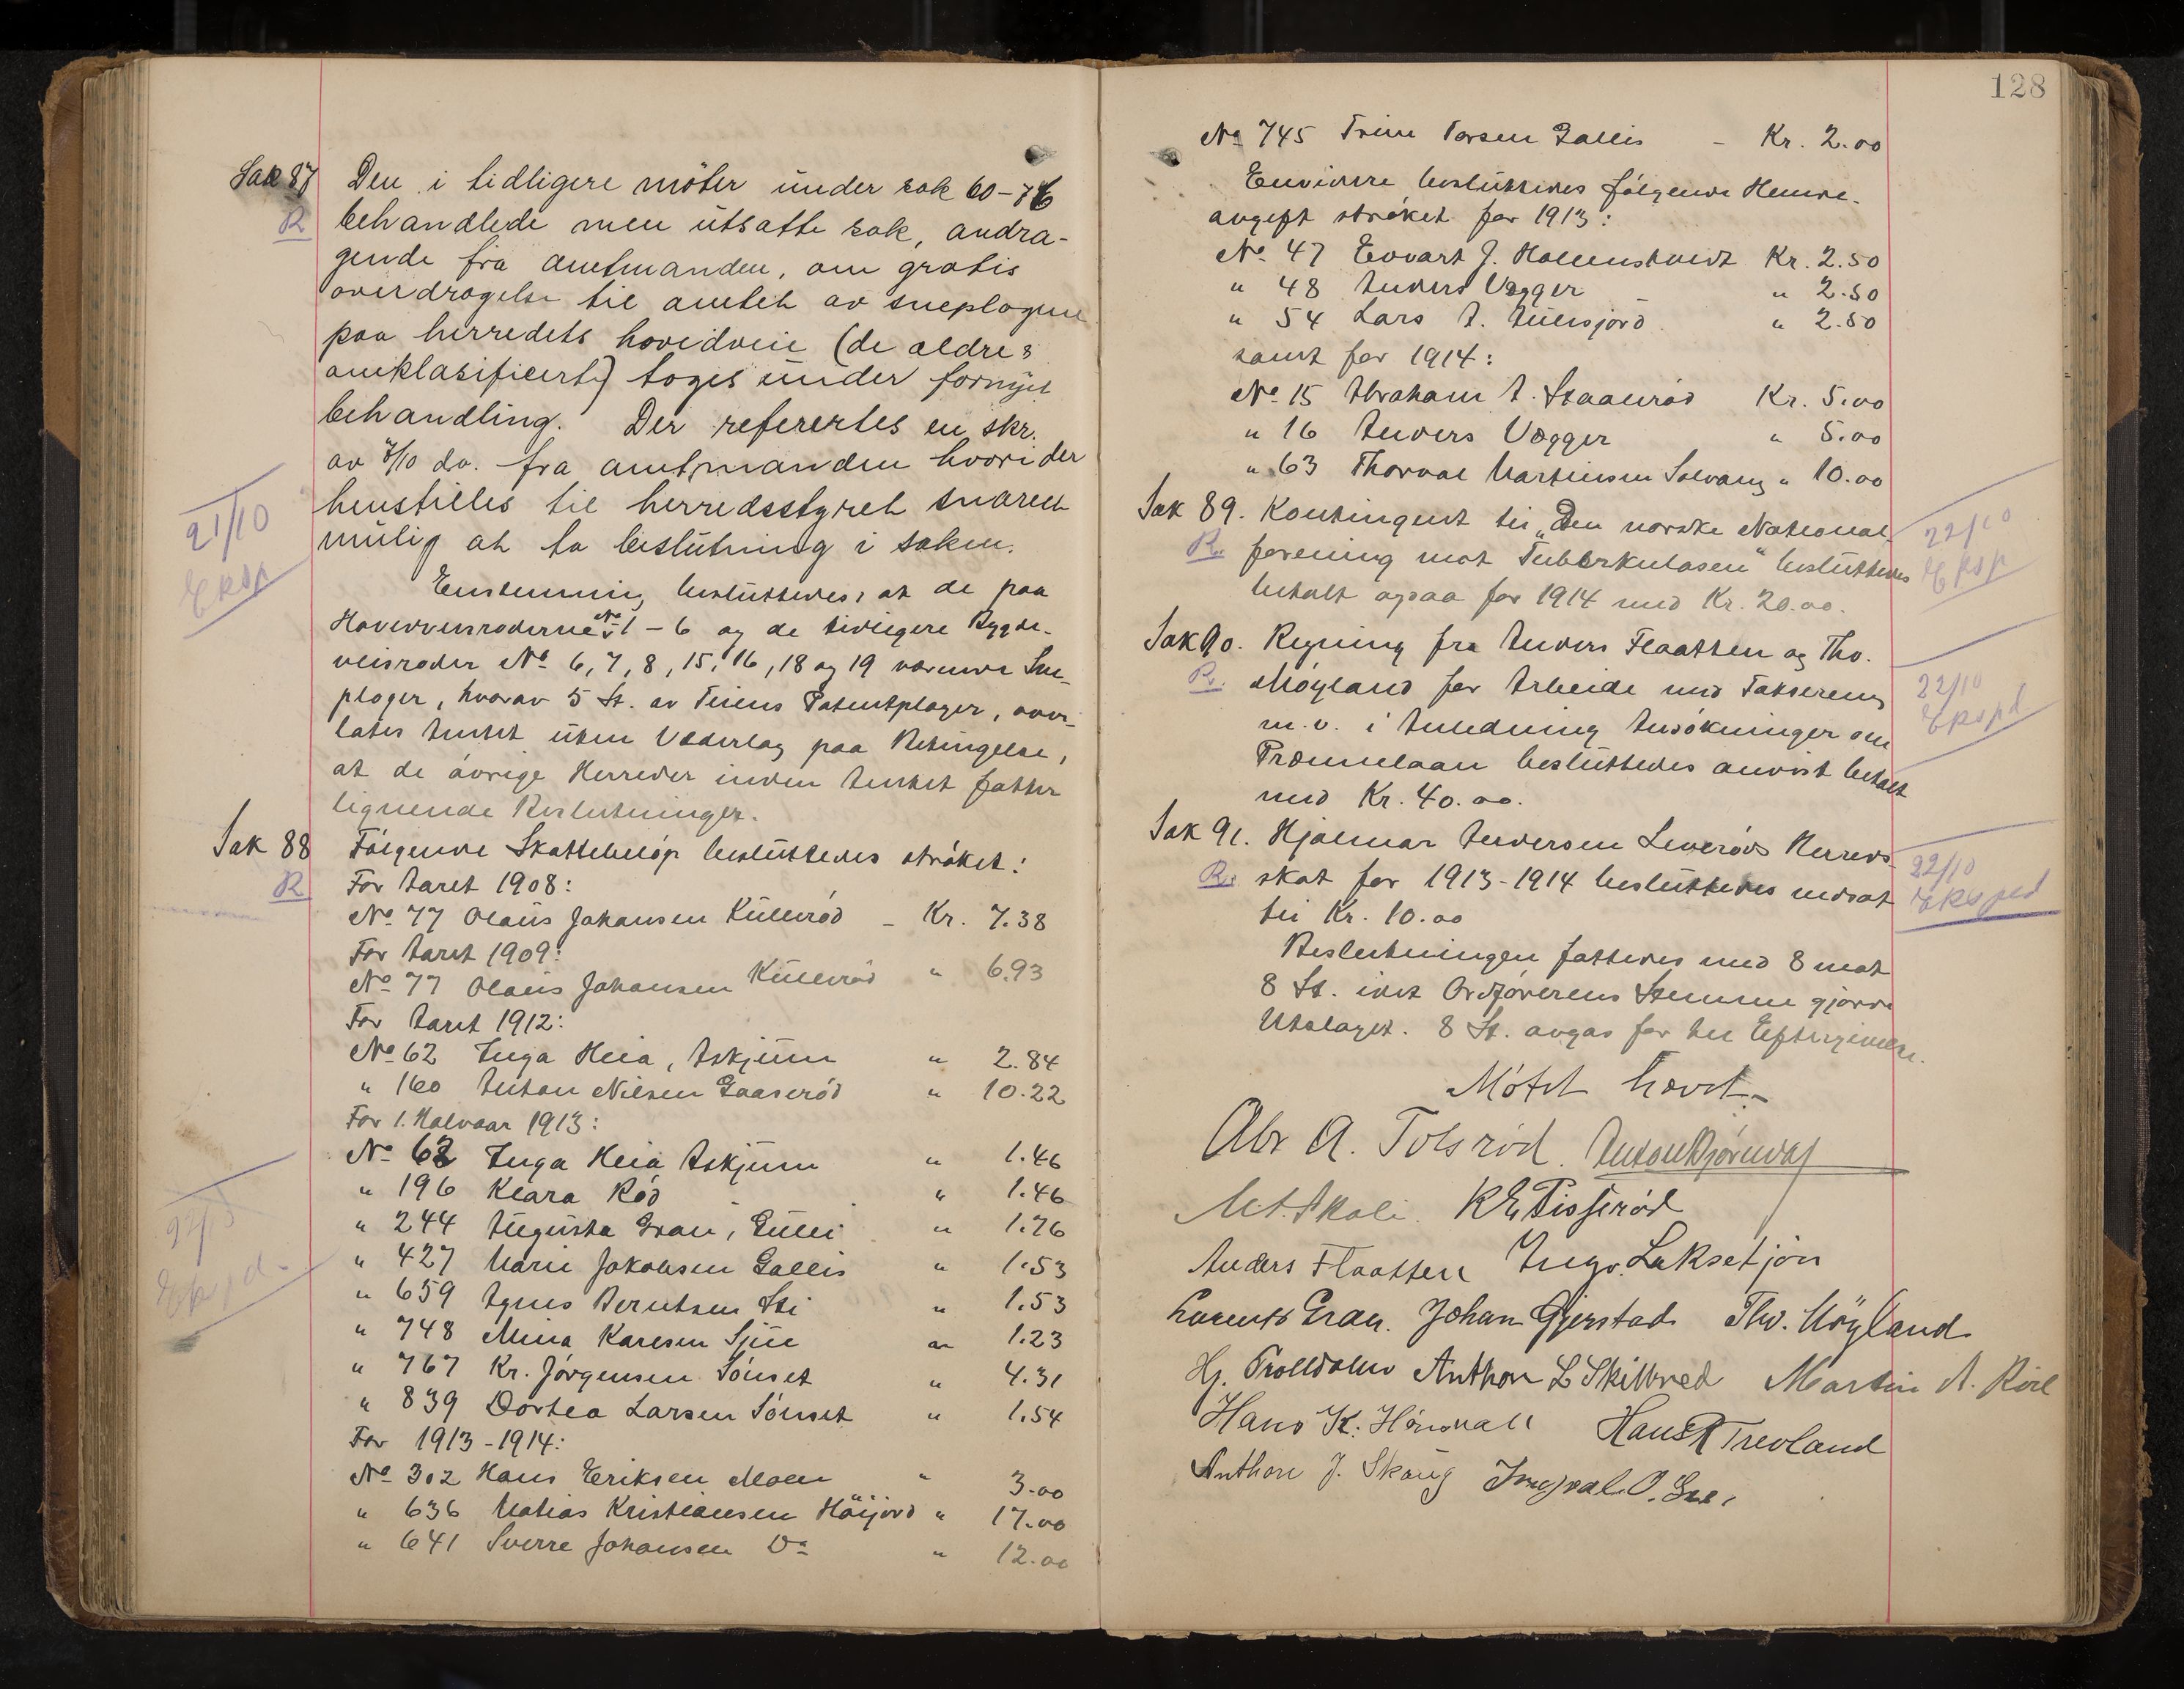 Sak 87 Den i tidligere möter under sak 60-76
R behandlede men utsatte sak, andra-
gende fra amtmanden, om gratis
overdragelse til amtet av sneplogene
paa herredets hovedveie (de ældre &
omklasificerte) toges under fornyet
behandling. Der referertes en skr.
av 7/10 d.a. fra amtmanden hvori der
henstilles til herredsstyret snarest
mulig at ta beslutning i saken.
21/10
Eksp
Enstemmig besluttedes, at de paa
Hovedveisroderne No 1-6 og de tidligere Bygde-
veisroder No 6, 7, 8, 15, 16, 18 og 19 værende Sne-
ploger, hvorav 5 St. av Teiens Patentploger, over-
lates Amtet uten Vederlag paa Betingelse,
at de övrige Herreder inden Amtet fatter
lignende Beslutninger.
Sak 88 Fölgende Skattebelöp besluttedes ströket:
R For Aaret 1908:
No 77 Olaus Johansen Kullerød - Kr. 7.38
For Aaret 1909:
No 77 Olaus Johansen Kullerød " 6.93
For Aaret 1912:
No 62 Inga Heia, Askjum " 2.84
" 160 Anton Nilsen Gaaserød " 10.22
For 1. Halvaar 1913:
No 62 Inga Heia Askjum " 1.46
" 196 Klara Röd " 1.46
" 244 Augusta Gran, Gulli " 1.76
" 427 Marie Jakobsen Gallis " 1.53
" 659 Agnes Berntsen Sti " 1.53
" 748 Mina Karlsen Sjue " 1.23
" 767 Kr. Jörgensen Sönset " 4.31
" 839 Dortea Larsen Sönset " 1.54
For 1913-1914:
No 302 Hans Eriksen Moen " 3.00
" 636 Matias Kristiansen Höijord " 17.00
" 641 Sverre Johansen Do " 12.00
22/10
Ekspd.
128
No 745 Trine Torsen Gallis - Kr. 2.00
Endvidere besluttedes fölgende Hunde-
avgift ströket for 1913:
No 47 Edvart J. Holmenskvedt Kr. 2.50
" 48 Anders Vegger " 2.50
" 54 Lars A. " 2.50
samt for 1914:
No 15 Abraham A. Staaleröd Kr. 5.00
" 16 Anders Vegger " 5.00
" 63 Thorval Martinsen Solvang " 10.00
Sak 89. Kontingent til "Den norske National-
R. forening mot Tuberkulosen" besluttedes
betalt ogsaa for 1914 med Kr. 20.00.
22/10
Eksp
Sak 90. Regning fra Anders Flaatten og Tho.
R. Möyland for Arbeide med Taksering
m.v. i Anledning Ansökninger om
Præmielaan besluttedes anvist betalt
med Kr. 40.00.
22/10
Ekspd
Sak 91. Hjalmar Andersen Leveröds Herreds-
R. skat for 1913-1914 besluttedes nedsat
til Kr. 10.00
22/10
Ekspd
Beslutningen fattedes med 8 mot
8 St. idet Ordförerens Stemme gjorde
Utslaget. 8 St. avgas for hel Eftergivelse.
Mötet hævet.-
Abr A. Tolsröd. Anton Björndal
M. A. Skoli. K E Tisseröd
Anders Flaatten Ingv. Laksetjön
Laurents Gran. Johan Gjerstad Tho. Möyland
Hj. Trolldalen Anthon L Skilbred Martin A. Röe
Hans K. Hönsvall Hans R Trevland
Anthon J. Skaug Ingval O.